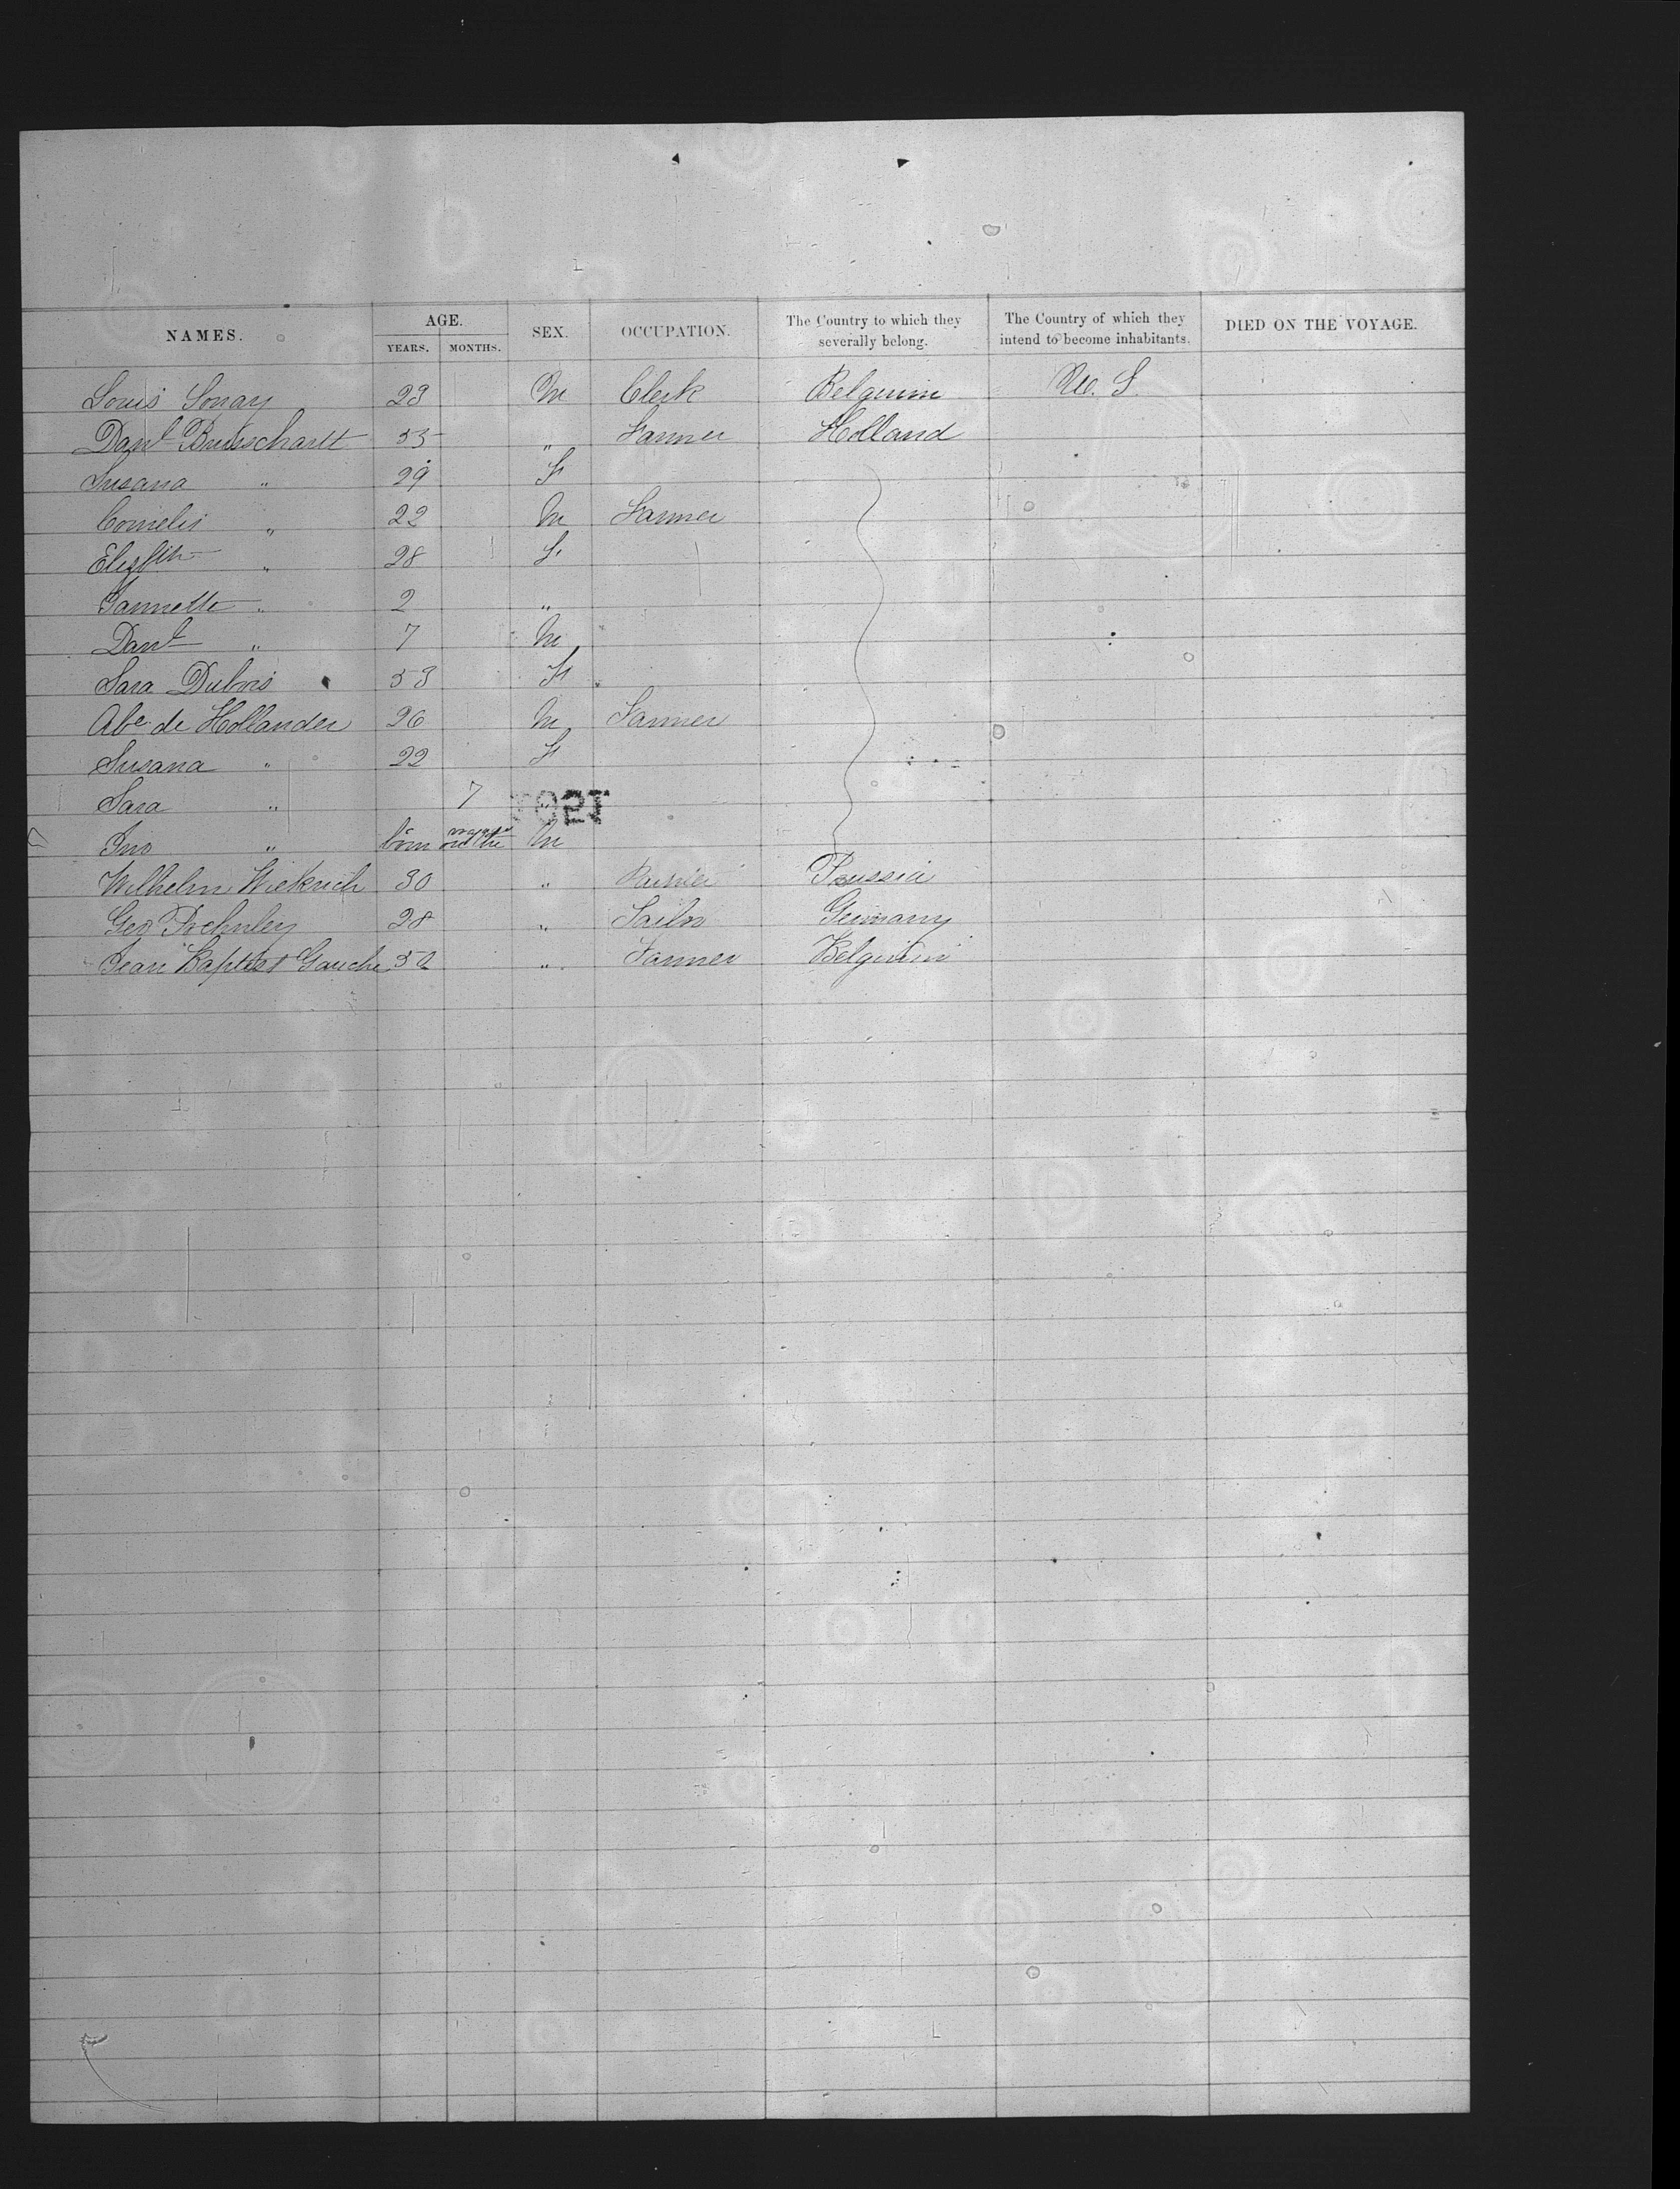 NAMES. AGE. YEARS. MONTHS. SEX. OCCUPATION. The Country to which they severally belong. The Country of which they intend to become inhabitants. DIED ON THE VOYAGE.
Louis Sonay 23 M Clerk Belguim U. S.
Danl 55 " Farmer Holland
Susana " 29 F
Cornelis " 22 M Farmer
" 28 F
Jannette " 2 "
Danl " 7 M
Sara Dubois 53 F
Abe de Hollander 26 M Farmer
Susana " 22 F
Sara " 7
Jno " born on the voyage M
Wilhelm 30 " Prussia
Geo 28 " Germany
Jean Baptist Gauche 52 " Farmer Belguim